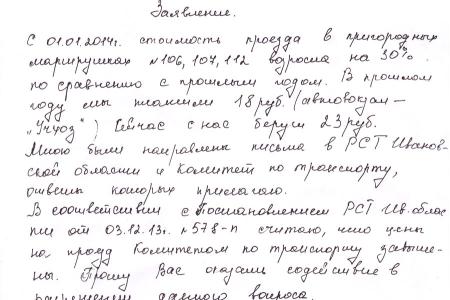 Заявление.
С 01.01.2014г. стоимость проезда в пригородных
маршрутках №106, 107, 112 возросла на 30%
по сравнению с прошлым годом. В прошлом
году мы платили 18 руб. (автовокзал —
„Учхоз") Сейчас с нас берут 23 руб.
Мною были направлены письма в РСТ Иванов-
ской области и Комитет по транспорту,
ответы которых прилагаю.
В соответствии с Постановлением РСТ Ив. облас
ти от 03.12.13г. №578-п считаю, что цены
на проезд Комитетом по транспорту завыше-
ны. Прошу Вас оказать содействие в
разрешении данного вопроса.